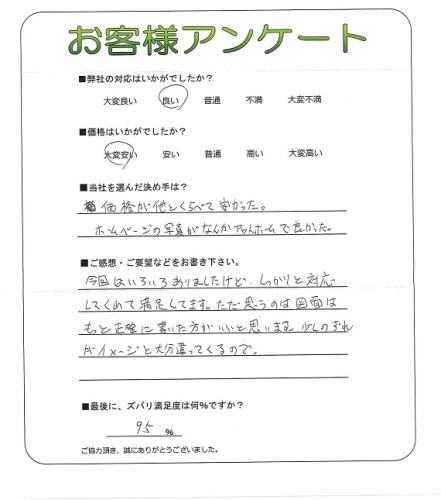 お客様アンケート
■弊社の対応はいかがでしたか?
大変良い 良い 普通 不満 大変不満
■価格はいかがでしたか?
大変安い 安い 普通 高い 大変高い
■当社を選んだ決め手は?
価格が他とくらべて安かった。
ホームページの写真がなんかアットホームで良かった。
■ご感想・ご要望などをお書き下さい。
今回はいろいろありましたけど、しっかりと対応
してくれて満足してます。ただ思うのは図面は
もっと正確に書いた方がいいと思います。少しのずれ
がイメージと大分違ってくるので。
■最後に、ズバリ満足度は何%ですか?
95 %
ご協力頂き、誠にありがとうございました。